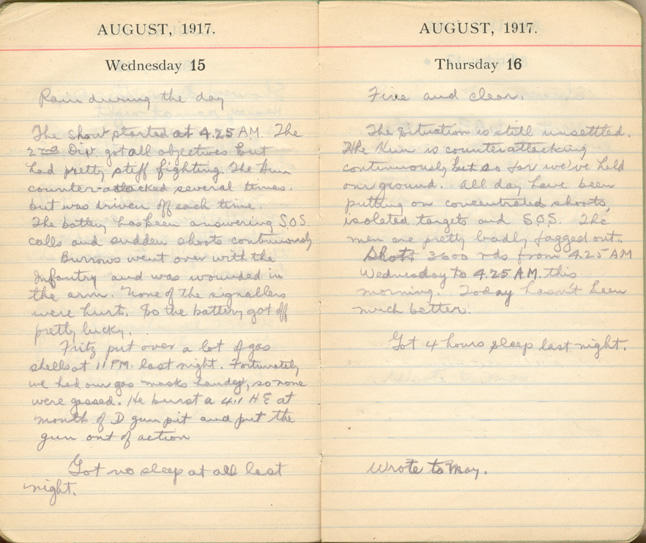 AUGUST, 1917.
Wednesday 15
Rain during the day
The show started at 4.25 AM. The
2nd Div. got all objectives but
had pretty stiff fighting. The Hun
counter-attacked several times.
but was driven off each time.
The battery has been answering S.O.S.
calls and sudden shoots continuously
Burrows went over with the
Infantry and was wounded in
the arm. None of the signallers
were hurt. So the battery got off
pretty lucky.
Fritz put over a lot of gas
shells at 11 PM. last night. Fortunately
we had our gas masks handy, so none
were gassed. He burst a 4.1 H E at
mouth of D gun pit and put the
gun out of action
Got no sleep at all last
night.
AUGUST, 1917.
Thursday 16
Fine and clear.
The situation is still unsettled.
The Hun is counterattacking
continuously but so far we've held
our ground. All day have been
putting on concentrated shoots,
isolated targets and SOS. The
men are pretty badly fagged out.
Shot 3600 rds from 4.25 AM
Wednesday to 4.25 AM. this
morning. Today hasn't been
much better.
Got 4 hours sleep last night.
Wrote to May.